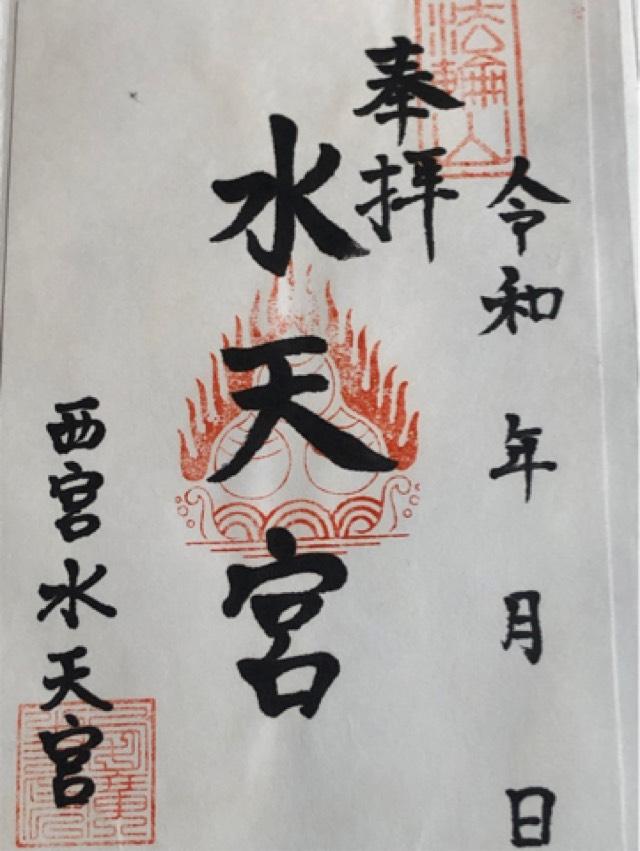 法輪山
奉拝
令和 年 月 日
水天宮
西宮水天宮